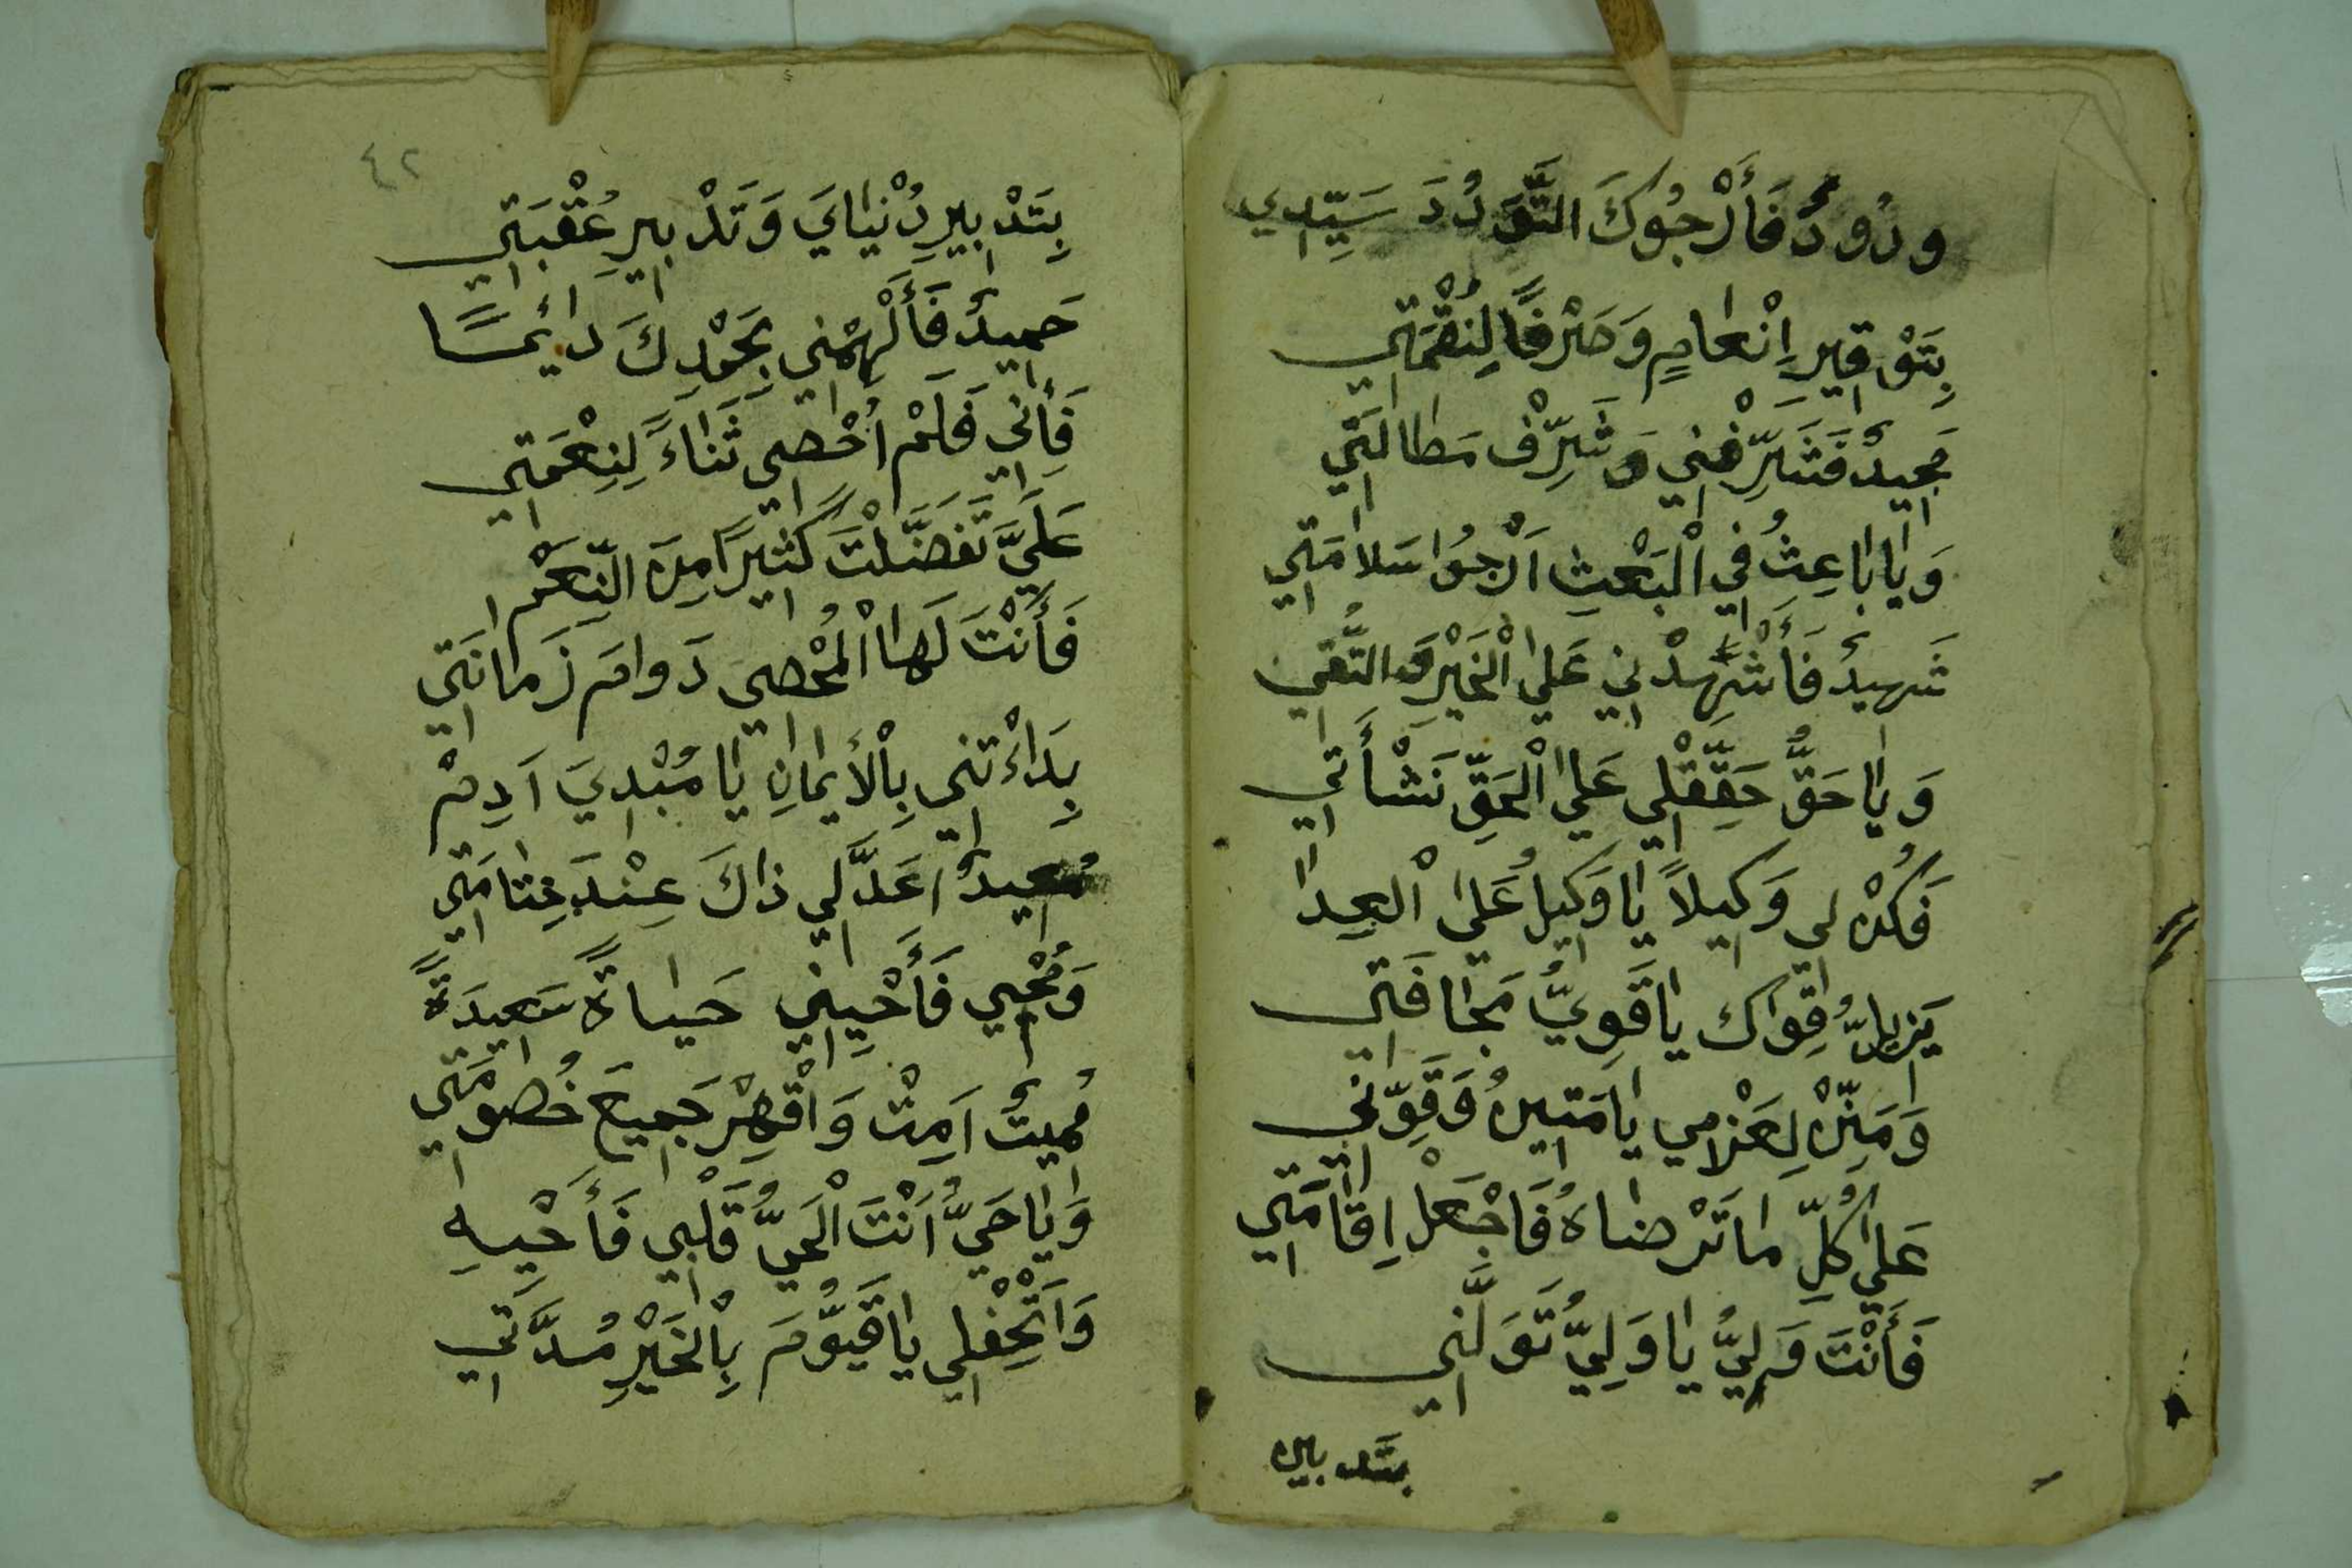 ودُودٌ فَأَرْجُوكَ التَّوَدُدَ سَيِّدِي
بِتَوْقِيرِ اِنْعَامٍ وَصَرْفًا لِنِقْمَتِي
مَجِيدٌ فَشَرِّفْنِي وَشَرِّفْ مَطَالَتِي
وَيَا بَاعِثُ فِي الْبَعْثِ اَرْجُوا سَلَامَتِي
شَهِيدٌ فَأَشْهِدْنِي عَلَى الْخَيْرِ وَالتُّقَى
وَيَا حَقُّ حَقِّقْلِي عَلَى الْحَقِّ نَشْأَتِي
فَكُنْ لِي وَكِيلًا يَا وَكِيلُ عَلَى الْعِدَا
قِوَاكَ يَا قَوِيُّ مَخَافَتِي
وَمَتِّنْ لِعَزْمِي يَا مَتِينُ وَقَوِّنِي
عَلَى كُلِّ مَا تَرْضَاهُ فَاجْعَلْ اِقَامَتِي
فَأَنْتَ وَلِيٌّ يَا وَلِيُّ تَوَلَّنِي
بتَّدبير
٤٢
بِتَدْبِيرِ دُنْيَايَ وَتَدْبِيرِ عُقْبَتِي
حَمِيدٌ فَأَلْهِمْنِي بِجَوْدِكَ دَائِمًا
فَأِنِّي فَلَمْ اُحْصِي ثَنَاءً لِنِعْمَتِي
عَلَيَّ تَفَضَّلْتَ كَثِيرًا مِنَ النِّعَمْ
فَأَنْتَ لَهَا الْمُحْصِي دَوَامَ زَمَانَتِي
بِدَاءْتَنِي بِالْأِيْمَانِ يَا مُبْدِيَ اَدِمْ
مُعِيدٌ اَعَدَّ لِي ذَاكَ عِنْدَ خِتَامَتِي
وَمُحْيِي فَأَحْيِنِي حَيَاةً سَعِيدَةً
مُمِيتٌ اَمِتْ وَاقْهِرْ جَمِيعَ خُصُومَتِي
وَيَا حَيُّ اَنْتَ الْحَيُّ قَلْبِي فَأَحْيِهِ
وَاَتْحِفْلِي يَا قَيُّومَ بِالْخَيْرِ مُدَّتِي